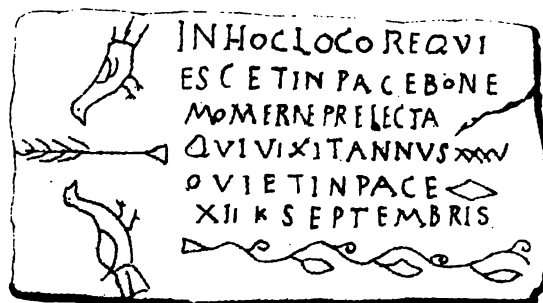 INHOCLOCOREQVI
ESCETINPACEBONE
MOMERNEPRELECTA
QVIVIXITANNVSXXXV
OVIETINPACE
XII K SEPTEMBRIS